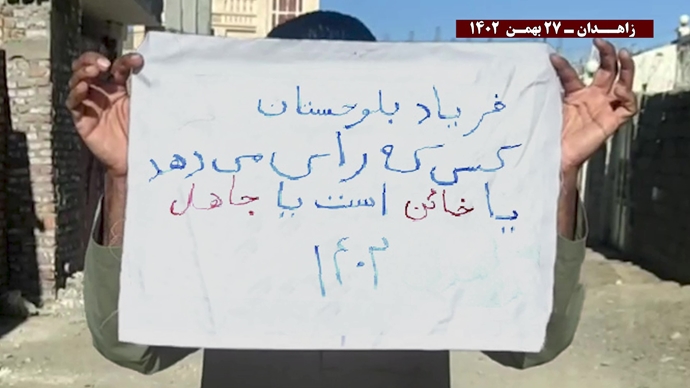 زاهـدان ــ ۲۷ بهمن ۱۴۰۲
فریاد بلوچستان
کسی که رای می دهد
یا خائن است یا جاهل
۱۴۰۲